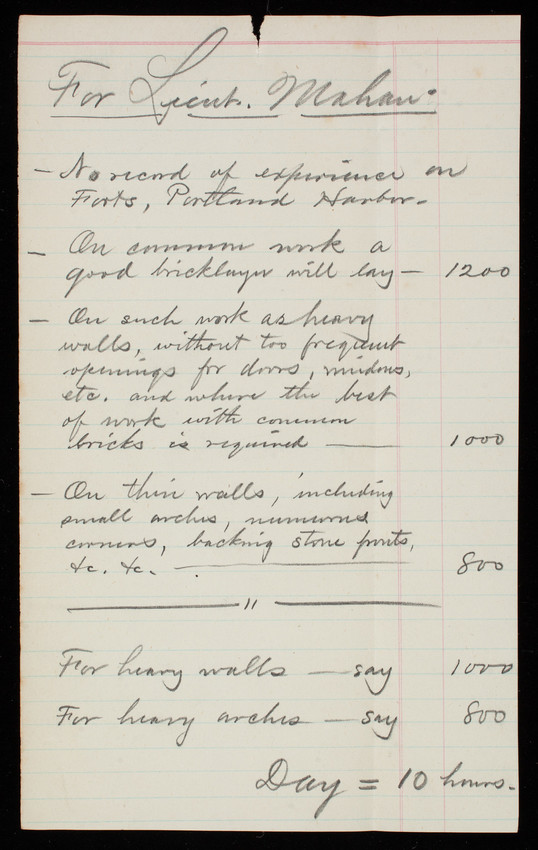 For Lieut. Mahan.
— No record of experience on
Forts, Portland Harbor.
— On common work a
good bricklayer will lay — 1200
— On such work as heavy
walls, without too frequent
openings for doors, windows,
etc. and where the best
of work with common
bricks is required — 1000
— On thin walls, including
small arches, numerous
corners, backing stone fronts,
&c. &c. — 800
— " —
For heavy walls — say 1000
For heavy arches — say 800
Day = 10 hours.